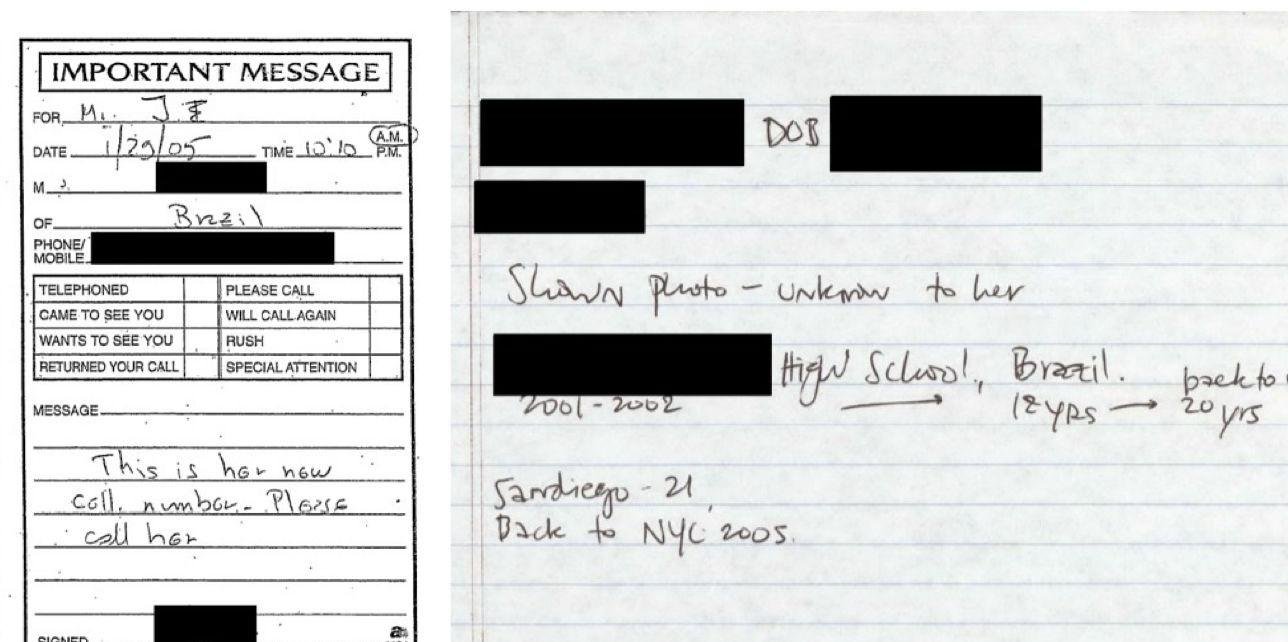 IMPORTANT MESSAGE
FOR Mr. J.E
DATE 1/29/05 TIME 10:10 A.M. P.M.
M
OF Brazil
PHONE/
MOBILE
TELEPHONED PLEASE CALL
CAME TO SEE YOU WILL CALL AGAIN
WANTS TO SEE YOU RUSH
RETURNED YOUR CALL SPECIAL ATTENTION
MESSAGE
This is her new
cell. number. Please
call her
SIGNED
DOB
Shown photo - unknown to her
High School, Brazil. back to
2001-2002 → 12 yrs → 20 yrs
Sandiego - 21
Back to NYC 2005.